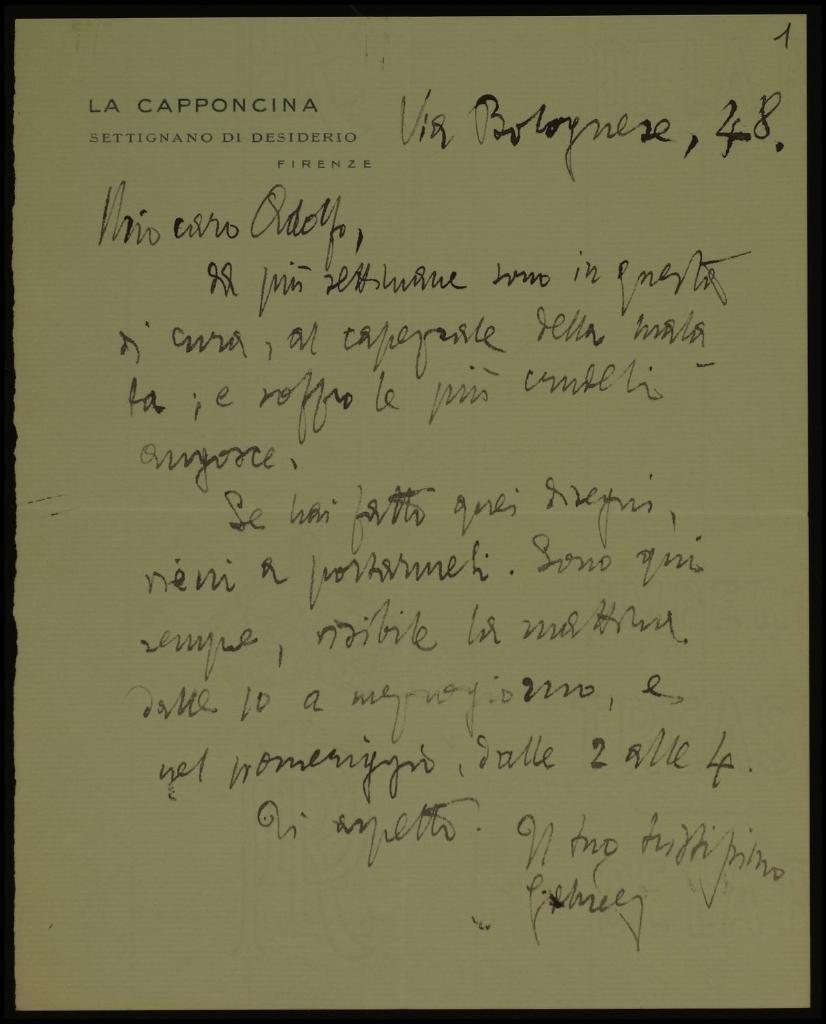 1
LA CAPPONCINA
SETTIGNANO DI DESIDERIO
FIRENZE
Via Bolognese, 48.
Mio caro Adolfo,
da più settimane sono in questa
di cura, al capezzale della mala
ta; e soffro le più crudeli
angosce.
Se hai fatto quei disegni,
vieni a portarmeli. Sono qui
sempre, visibile la mattina
dalle 10 a mezzogiorno, e
nel pomeriggio, dalle 2 alle 4.
Ti aspetto.
Il tuo tristissimo
Gabriel